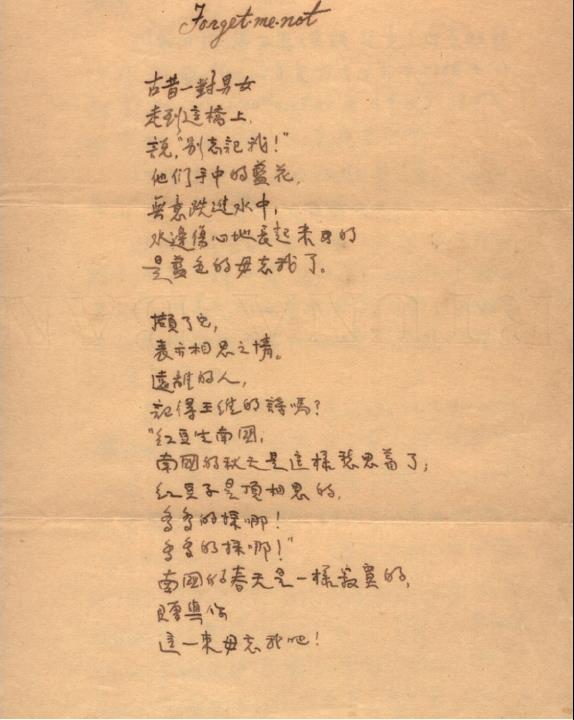 Forget-me-not
古昔一對男女
走到這橋上,
說,"別忘記我!"
他们手中的藍花,
無意跌進水中,
水邊傷心地長起來的
是藍色的毋忘我了。
擷了它,
表示相思之情。
遠離的人,
記得王維的詩嗎?
"紅豆生南國,
南國的秋天是這樣愁思着了;
紅豆子是頂相思的,
多多的採哪!
多多的採哪!"
南國的春天是一樣寂寞的,
贈與你
這一束毋忘我吧!